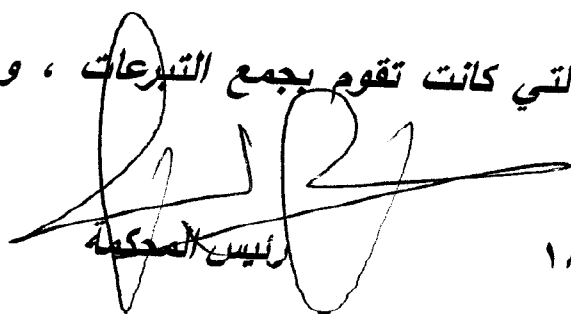 لتي كانت تقوم بجمع التبرعات ، و
رئيس المحكمة